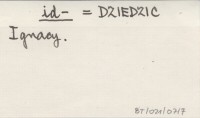 id- = DZIEDZIC
Ignacy.
BT/021/0717